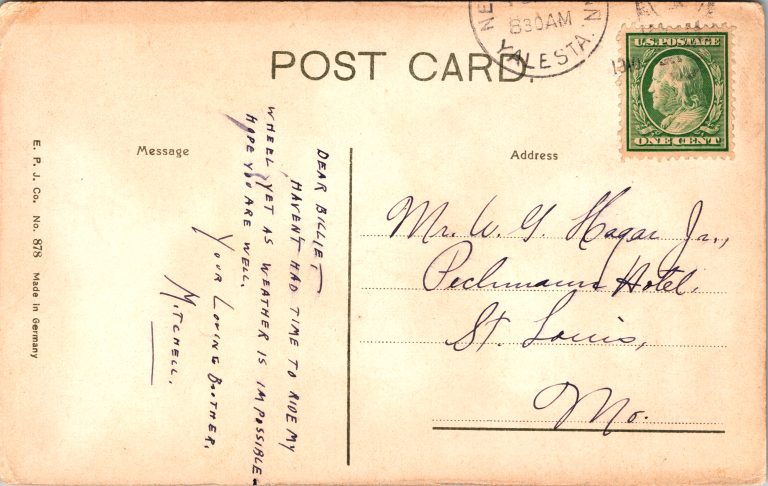 POST CARD.
NE
830AM
YALESTA. N
U.S.POSTAGE
ONE CENT
Message
Address
DEAR BILLIET
HAVENT HAD TIME TO RIDE MY
WHEEL YET AS WEATHER IS IMPOSSIBLE
HOPE YOU ARE WELL.
YOUR LOVING BROTHER.
MITCHELL.
Mr. W. G. Hagar Jr.,
Pechmann Hotel.
St. Louis,
Mo.
E. P. J. Co. No. 878 Made in Germany